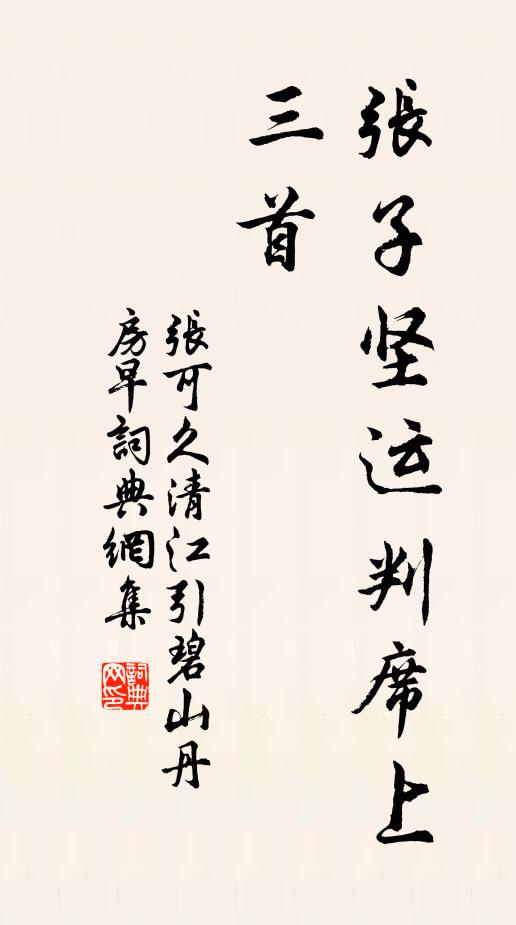 張子坚运判席上
三首
張可久清江引碧山丹
房早詞典網集
詞典网印